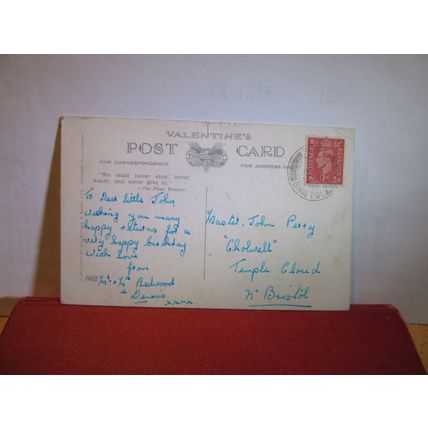 VALENTINE'S
POST CARD
FOR CORRESPONDENCE
FOR ADDRESS ONLY
"We shall never stop, never
weary, and never give in."
—The Prime Minister
To Dear little John
wishing you many
happy returns for a
very happy birthday
with love
from
Mr & Mrs Redwood
Dennis
xxxx
Master John Perry
"Cholwell"
Temple Cloud
Nr Bristol
POSTAGE
REVENUE
BRISTOL